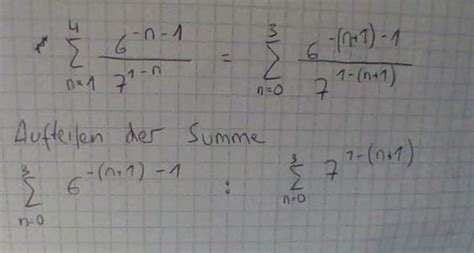 4 ∑ n=1 6^(-n-1) / 7^(1-n) = 3 ∑ n=0 6^(-(n+1)-1) / 7^(1-(n+1))
Aufteilen der Summe
3 ∑ n=0 6^(-(n+1)-1) : 3 ∑ n=0 7^(1-(n+1))